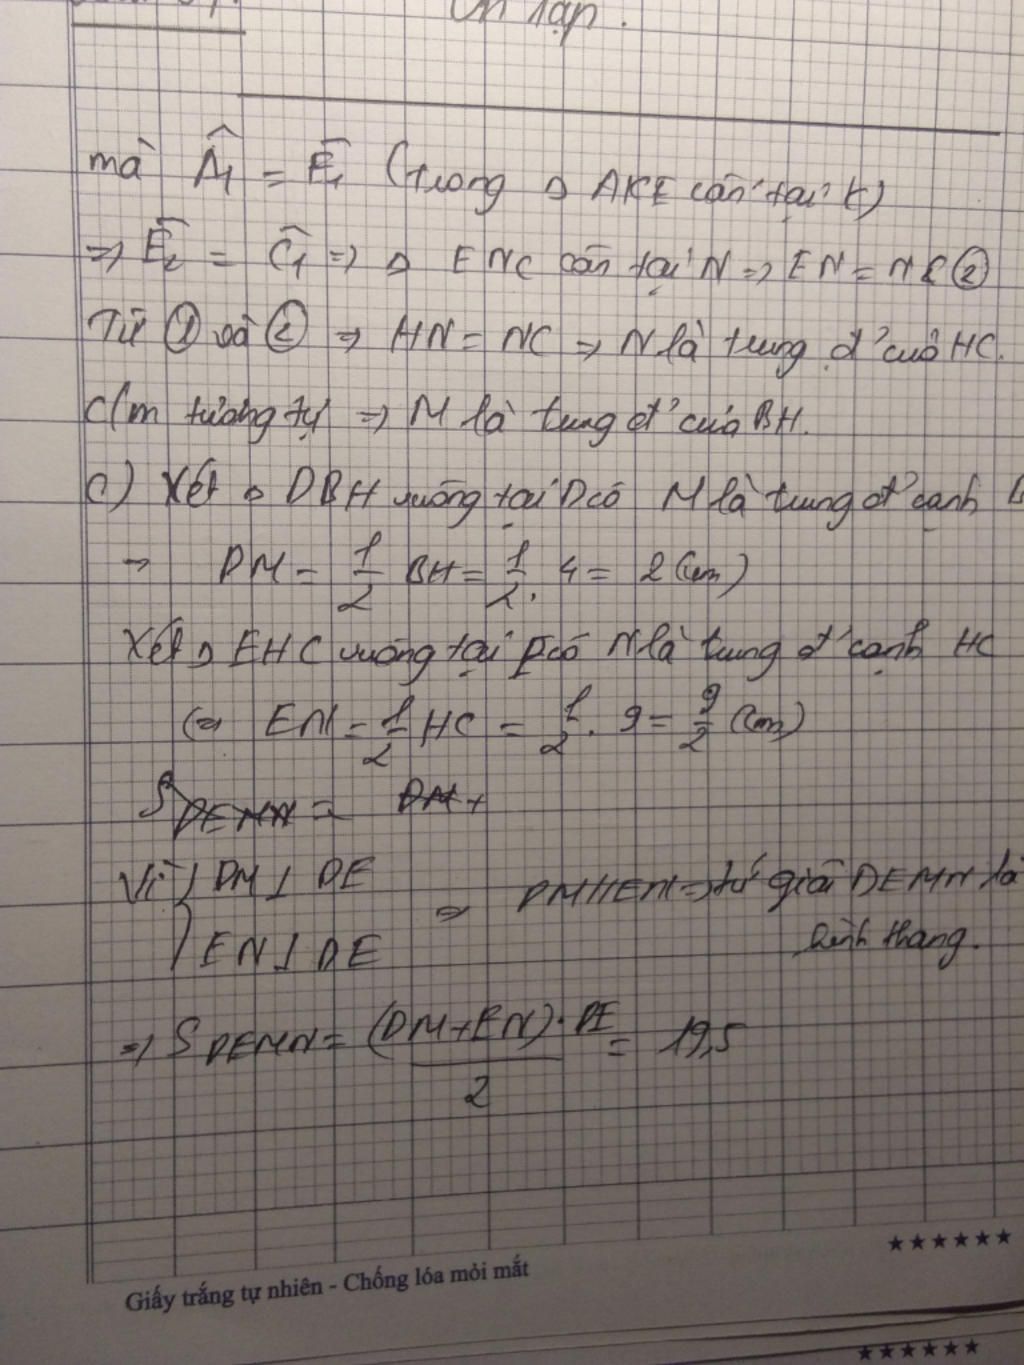 Ôn tập.
mà Â₁ = Ê₁ (trong Δ AKE cân tại K)
⇒ Ê₂ = Ĉ₁ ⇒ Δ ENC cân tại N ⇒ EN = NC ②
Từ ① và ② ⇒ HN = NC ⇒ N là trung đ' của HC.
C/m tương tự ⇒ M là trung đ' của BH.
c) Xét Δ DBH vuông tại D có M là trung đ' cạnh
⇒ DM = 1/2 BH = 1/2 . 4 = 2 (cm)
Xét Δ EHC vuông tại E có N là trung đ' cạnh HC
⇒ EN = 1/2 HC = 1/2 . 9 = 9/2 (cm)
S DEMN = DM +
Vì { DM ⊥ DE
EN ⊥ DE
⇒ DM // EN ⇒ tứ giác DEMN là
hình thang.
⇒ S DEMN = (DM + EN) . DE / 2 = 19,5
★★★★★★
Giấy trắng tự nhiên - Chống lóa mỏi mắt
★★★★★★